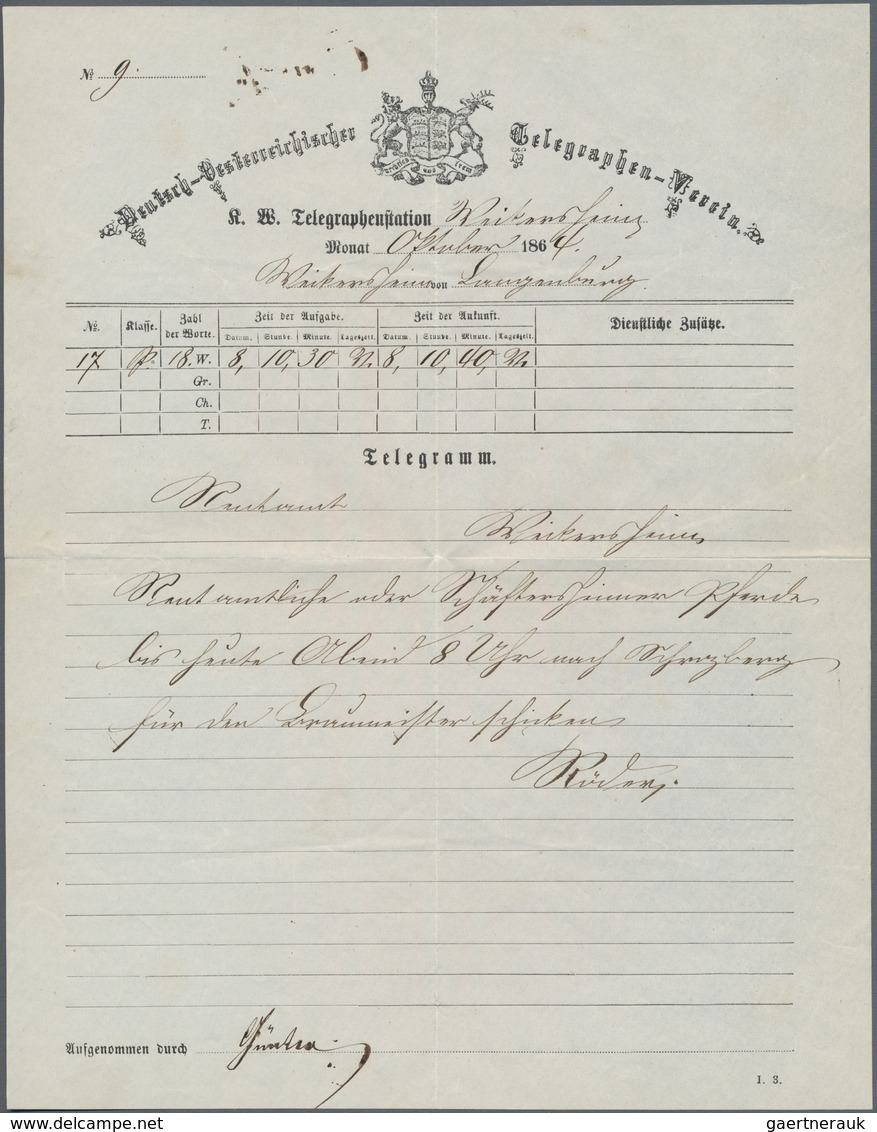 № 9.
Deutsch-Oesterreichischer Telegraphen-Verein.
furchtlos und trew
K. W. Telegraphenstation Weikersheim
Monat Oktober 1864.
Weikersheim von Langenburg.
№. Klasse. Zahl der Worte. Zeit der Aufgabe. Zeit der Ankunft. Dienstliche Zusätze.
Datum. Stunde. Minute. Tageszeit. Datum. Stunde. Minute. Tageszeit.
17 P. 18. W. 8, 10, 30 V. 8, 10, 40, V.
Gr.
Ch.
T.
Telegramm.
Rentamt
Weikersheim
Rentamtliche oder Schäftersheimer Pferde
bis heute Abend 8 Uhr nach Schrozberg
für den Braumeister schicken
Röder.
Aufgenommen durch Günter
I. 3.
www.delcampe.net
gaertnerauk